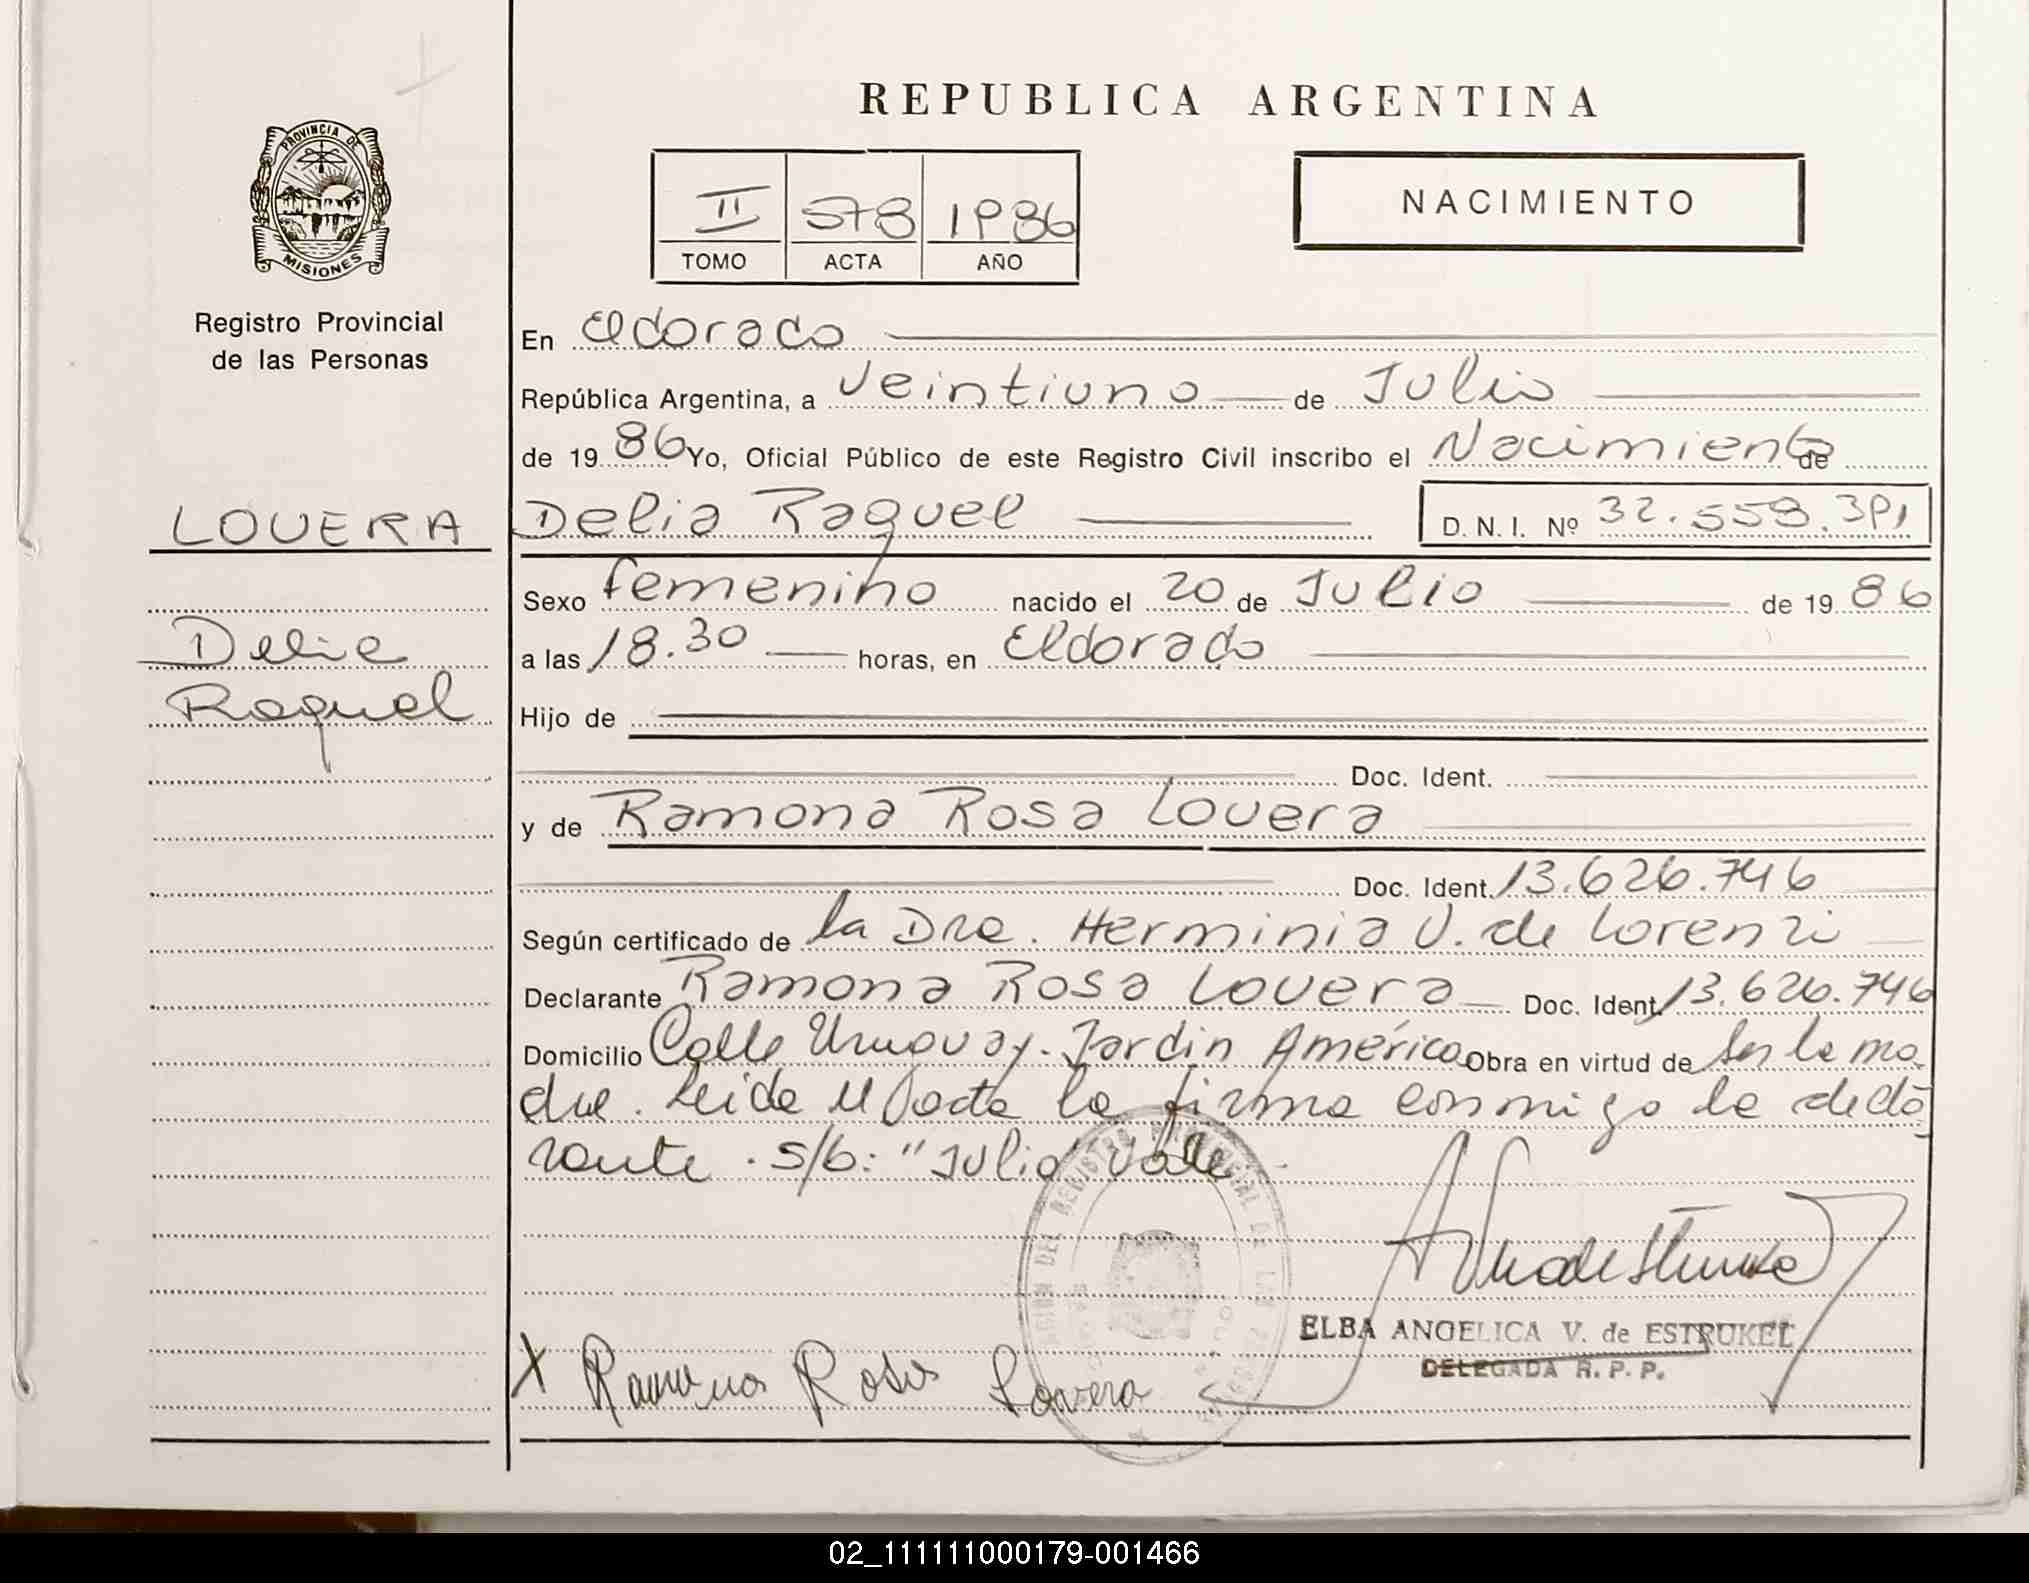 REPUBLICA ARGENTINA
PROVINCIA DE
MISIONES
Registro Provincial
de las Personas
II 578 1986
TOMO ACTA AÑO
NACIMIENTO
En Eldorado
República Argentina, a Veintiuno de Julio
de 1986 Yo, Oficial Público de este Registro Civil inscribo el Nacimiento de
LOVERA
Delia Raquel D. N. I. Nº 32.559.391
Sexo femenino nacido el 20 de Julio de 1986
Delia
a las 18.30 horas, en Eldorado
Raquel
Hijo de
Doc. Ident.
y de Ramona Rosa Lovera
Doc. Ident. 13.626.746
Según certificado de la Dra. Herminia V. de Lorenzi
Declarante Ramona Rosa Lovera Doc. Ident. 13.626.746
Domicilio Calle Uruguay. Jardin América Obra en virtud de Ser la ma
dre. Leida el Acta la firma conmigo la decla
rante. s/b: "Julio" Vale
ELBA ANGELICA V. de ESTRUKEL
DELEGADA R. P. P.
X Ramona Rosa Lovera
02_111111000179-001466